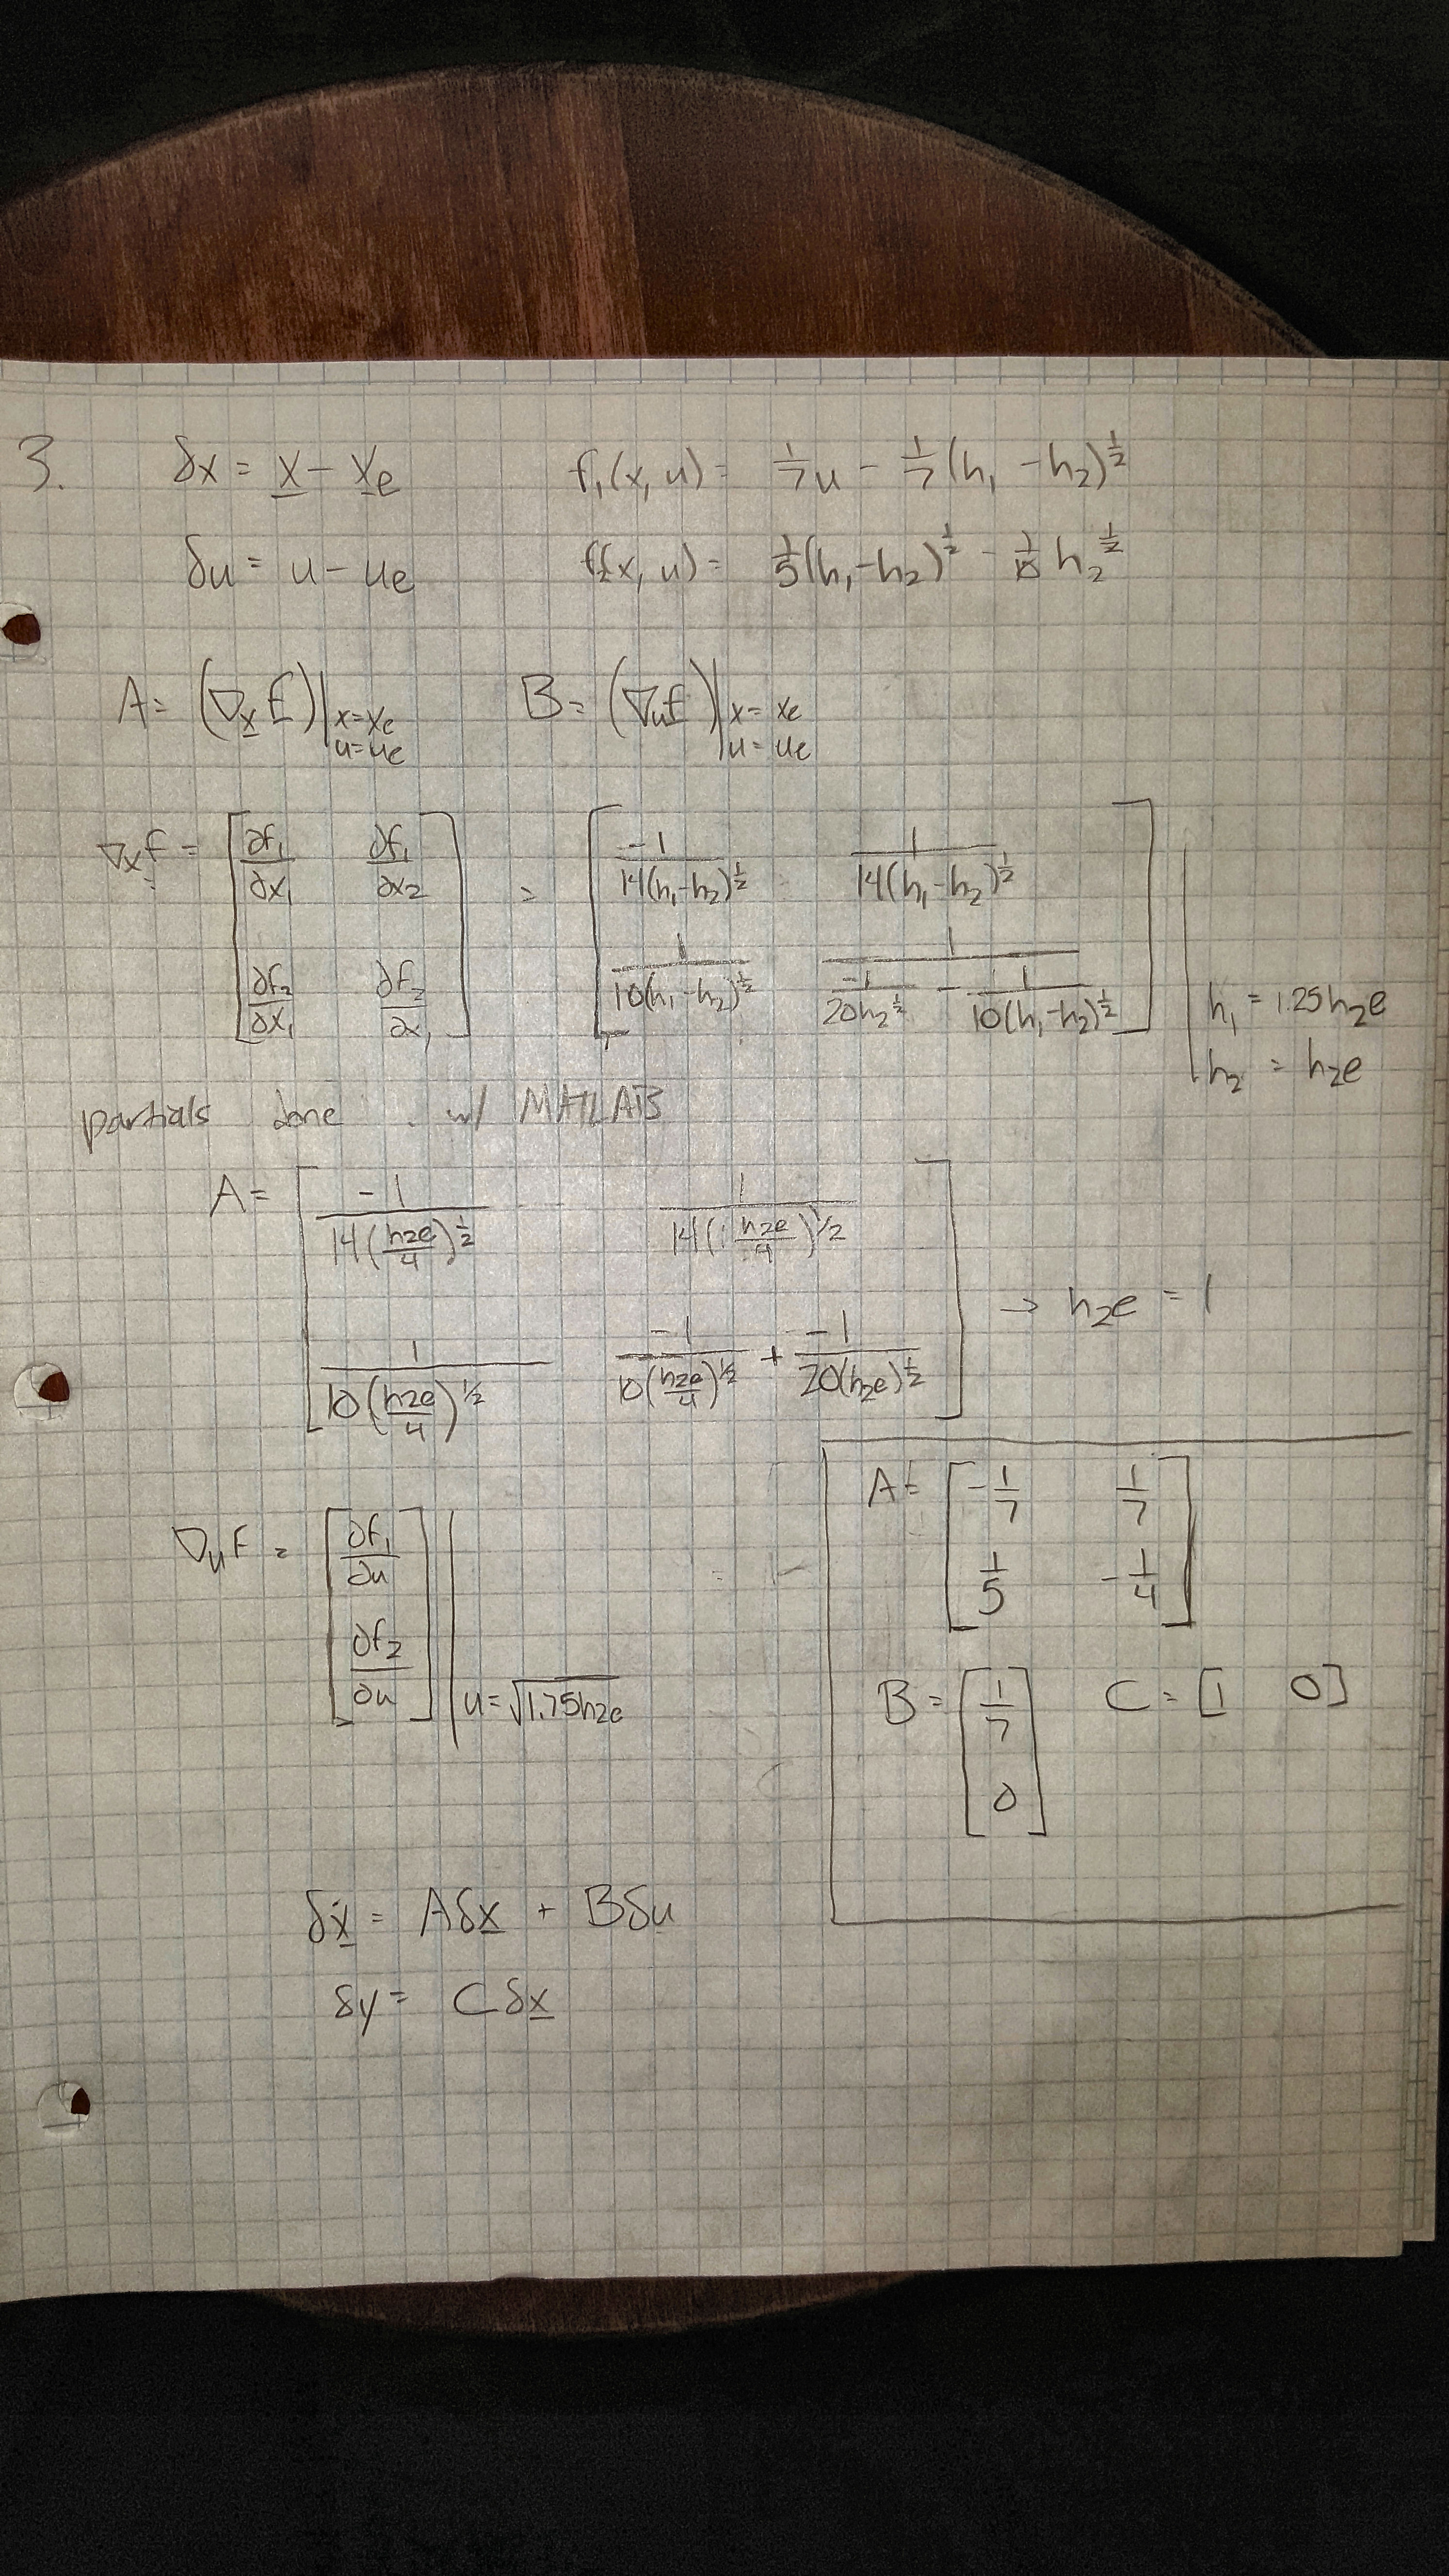 3. δx = x - xe    f₁(x, u) = 1/7 u - 1/7 (h₁ - h₂)^½
δu = u - ue    f₂(x, u) = 1/5 (h₁ - h₂)^½ - 1/10 h₂^½
A = (∇x f)|x=xe u=ue    B = (∇u f)|x=xe u=ue
∇x f = [∂f₁/∂x₁  ∂f₁/∂x₂ ; ∂f₂/∂x₁  ∂f₂/∂x₁] = [-1/(14(h₁-h₂)^½)  1/(14(h₁-h₂)^½) ; 1/(10(h₁-h₂)^½)  -1/(20h₂^½) - 1/(10(h₁-h₂)^½)] | h₁ = 1.25h₂e h₂ = h₂e
partials done w/ MATLAB
A = [-1/(14(h₂e/4)^½)  1/(14(h₂e/4)^1/2) ; 1/(10(h₂e/4)^1/2)  -1/(10(h₂e/4)^1/2) + -1/(20(h₂e)^½)] → h₂e = 1
∇u f = [∂f₁/∂u ; ∂f₂/∂u] | u = √1.25h₂e
A = [-1/7  1/7 ; 1/5  -1/4]
B = [1/7 ; 0]    C = [1  0]
δẋ = Aδx + Bδu
δy = Cδx